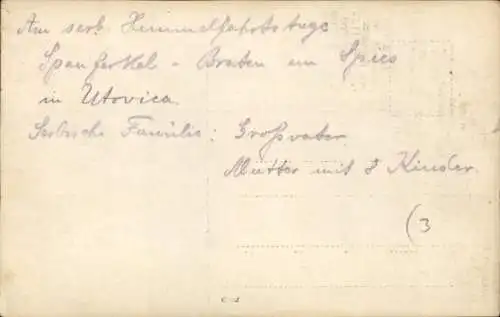 Am serb. Himmelfahrtstage
Spanferkel - Braten am Spies
in Utovica
Serbische Familie: Großvater
Mutter mit 3 Kinder.
(3